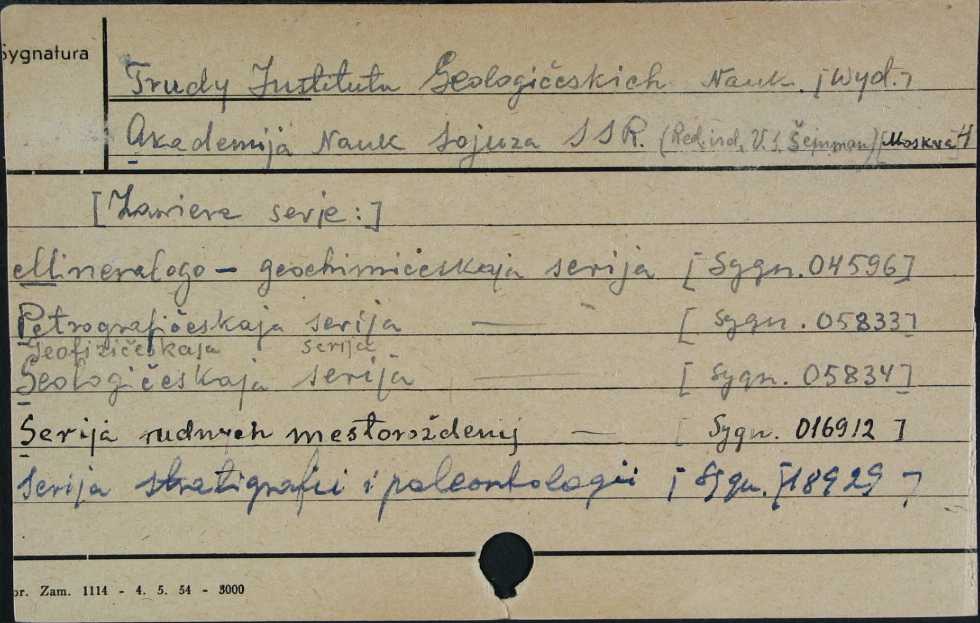 Sygnatura
Trudy Instituta Geologičeskich Nauk. [Wyd.]
Akademija Nauk Sojuza SSR. (Red. ind. V. S. Šejnman) [Moskva]
[Zawiera serje:]
Mineralogo - geochimičeskaja serija [Sygn. 04596]
Petrografičeskaja serija — [Sygn. 05833]
Geofizičeskaja serija
Geologičeskaja serija — [Sygn. 05834]
Serija rudnych mestoroždenij — [Sygn. 016912]
Serija stratigrafii i paleontologii [Sygn. 18929]
or. Zam. 1114 - 4. 5. 54 - 3000